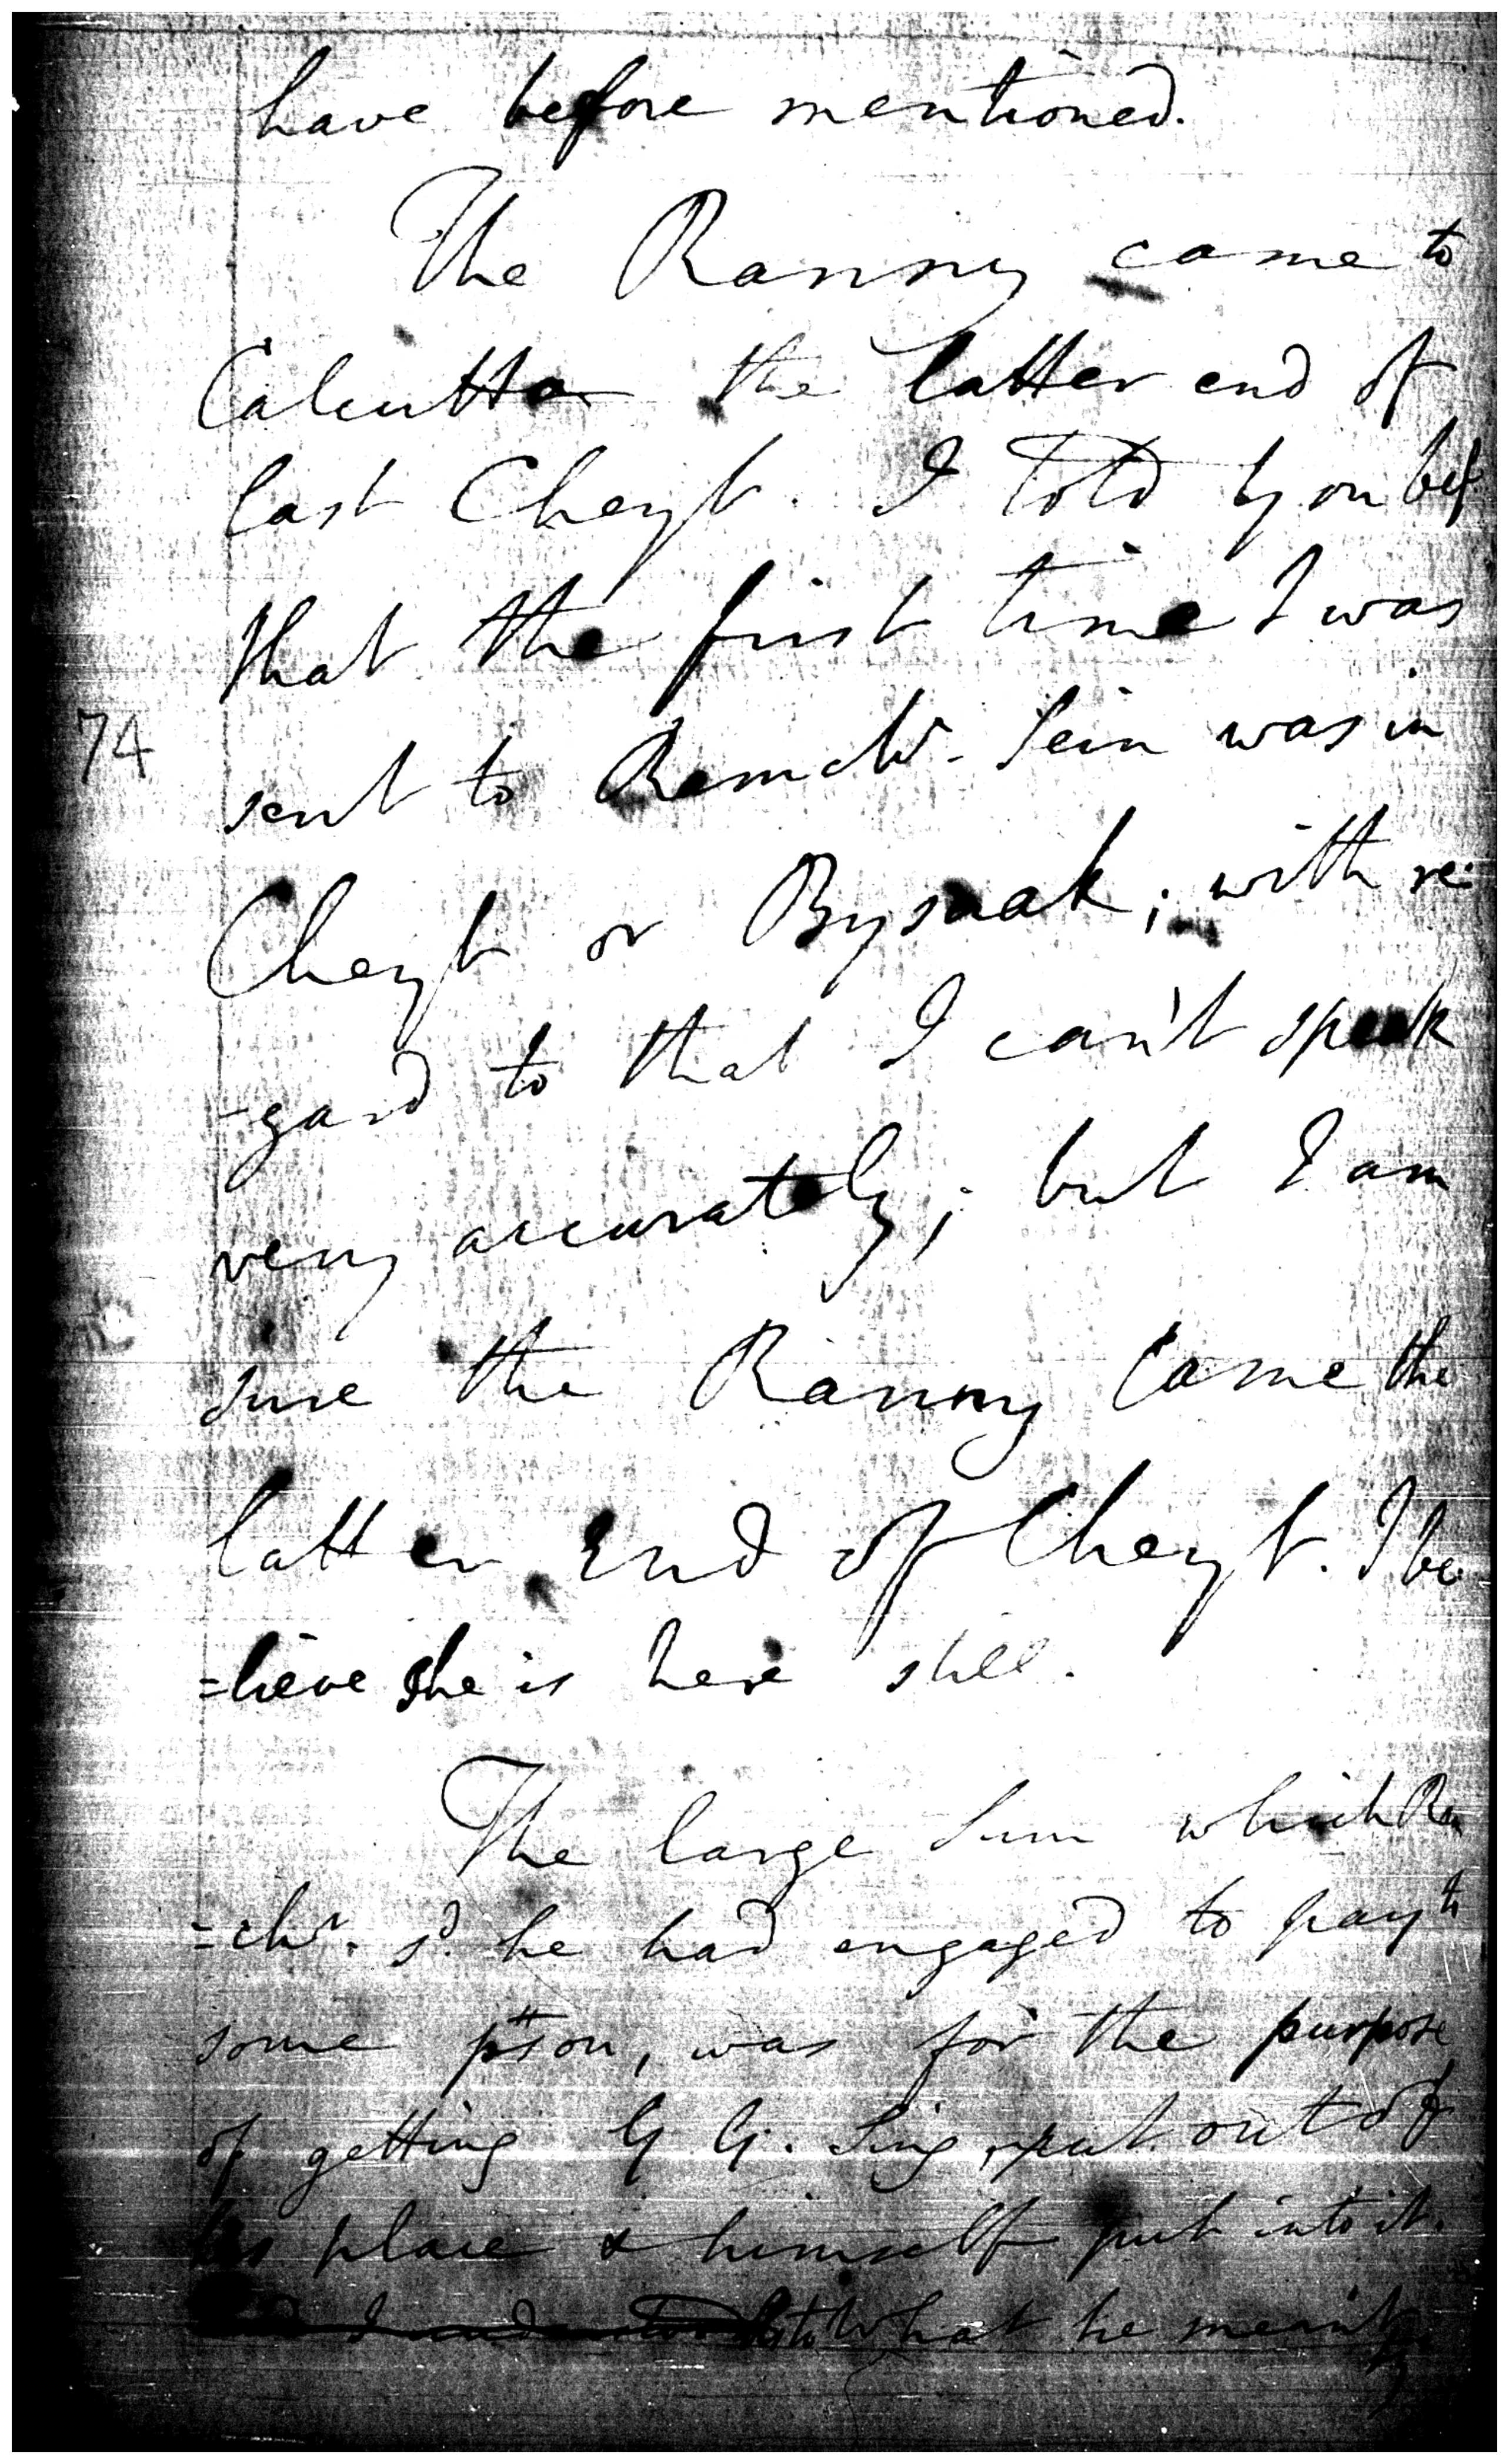 have before mentioned.
The Ranny came to
Calcutta the latter end of
last Cheyt. I told you bef
that the first time I was
74
sent to Ramchr. Sein was in
Cheyt or Bysaak; with re
-gard to that I can't speak
very accurately; but I am
sure the Ranny came the
latter end of Cheyt. I be
=lieve she is here still.
The large sum which Ra
=chr. sd. he had engaged to pay to
some pson, was for the purpose
of getting G G. Sing put out of
his place & himself put into it.
What he meant